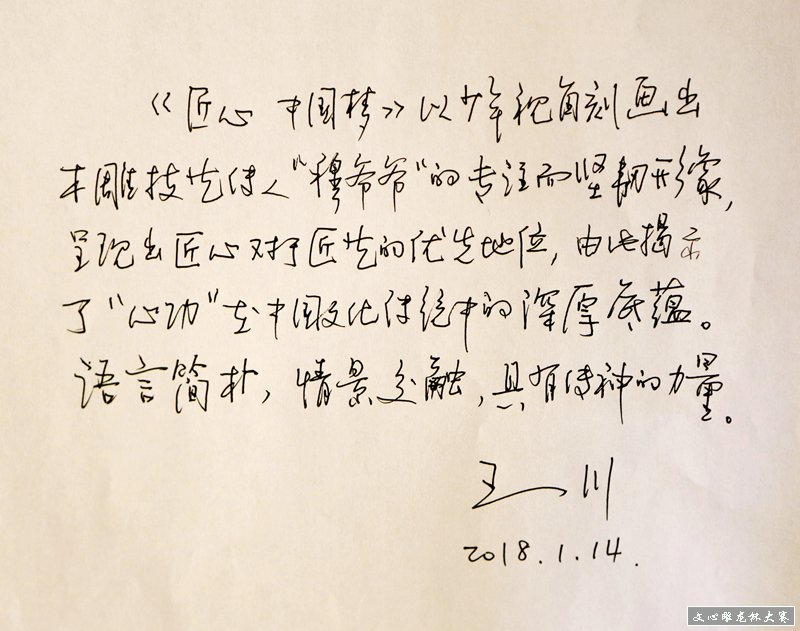 《匠心 中国梦》以少年视角刻画出
木雕技艺传人“穆爷爷”的专注而坚韧形象，
呈现出匠心对于匠艺的优先地位，由此揭示
了“心功”在中国文化传统中的深厚底蕴。
语言简朴，情景交融，具有传神的力量。
王一川
2018.1.14.
文心雕龙杯大赛